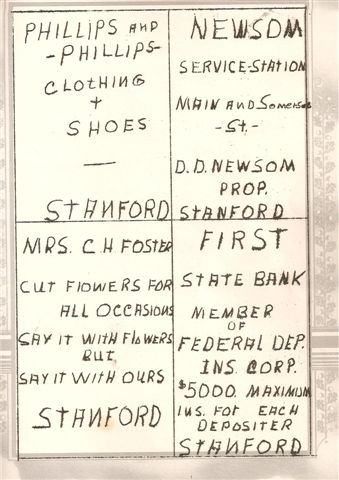 PHILLIPS AND
-PHILLIPS-
CLOTHING
+
SHOES
—
STANFORD
NEWSOM
SERVICE-STATION
MAIN AND Somerset
-St.-
D.D. NEWSOM
PROP.
STANFORD
MRS. C H FOSTER
CUT FlOWERS FOR
ALL OCCASIONS
SAY IT WITH FlOWERS
BUT
SAY IT WITH OURS
STANFORD
FIRST
STATE BANK
MEMBER
OF
FEDERAL DEP.
INS. CORP.
$5000. MAXIMUM
INS. FOR EACH
DEPOSITER
STANFORD